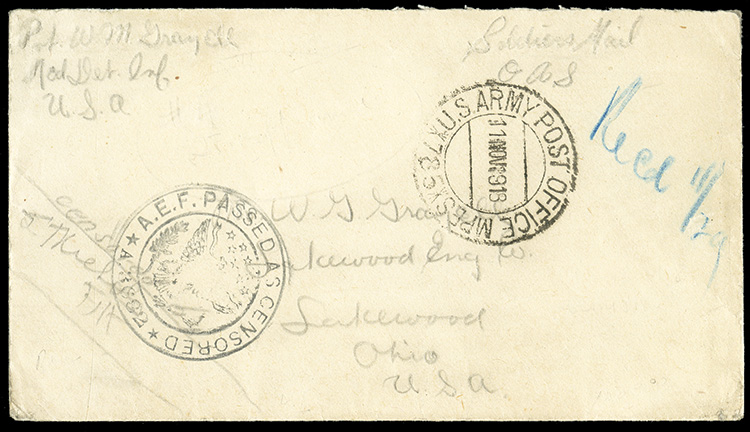 Pvt. W M
Med Det. Inf.
U.S.A
Soldiers Mail
O A S
U.S. ARMY POST OFFICE MPES
11 NOV 1918
Recd 11/29
A.E.F. PASSED AS CENSORED
W G
Lakewood Eng
Lakewood
Ohio
U.S.A.